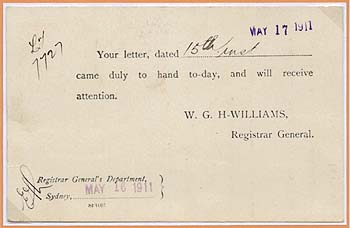 MAY 17 1911
7727
Your letter, dated 15th inst
came duly to hand to-day, and will receive
attention.
W. G. H-WILLIAMS,
Registrar General.
Registrar General's Department,
Sydney, MAY 16 1911